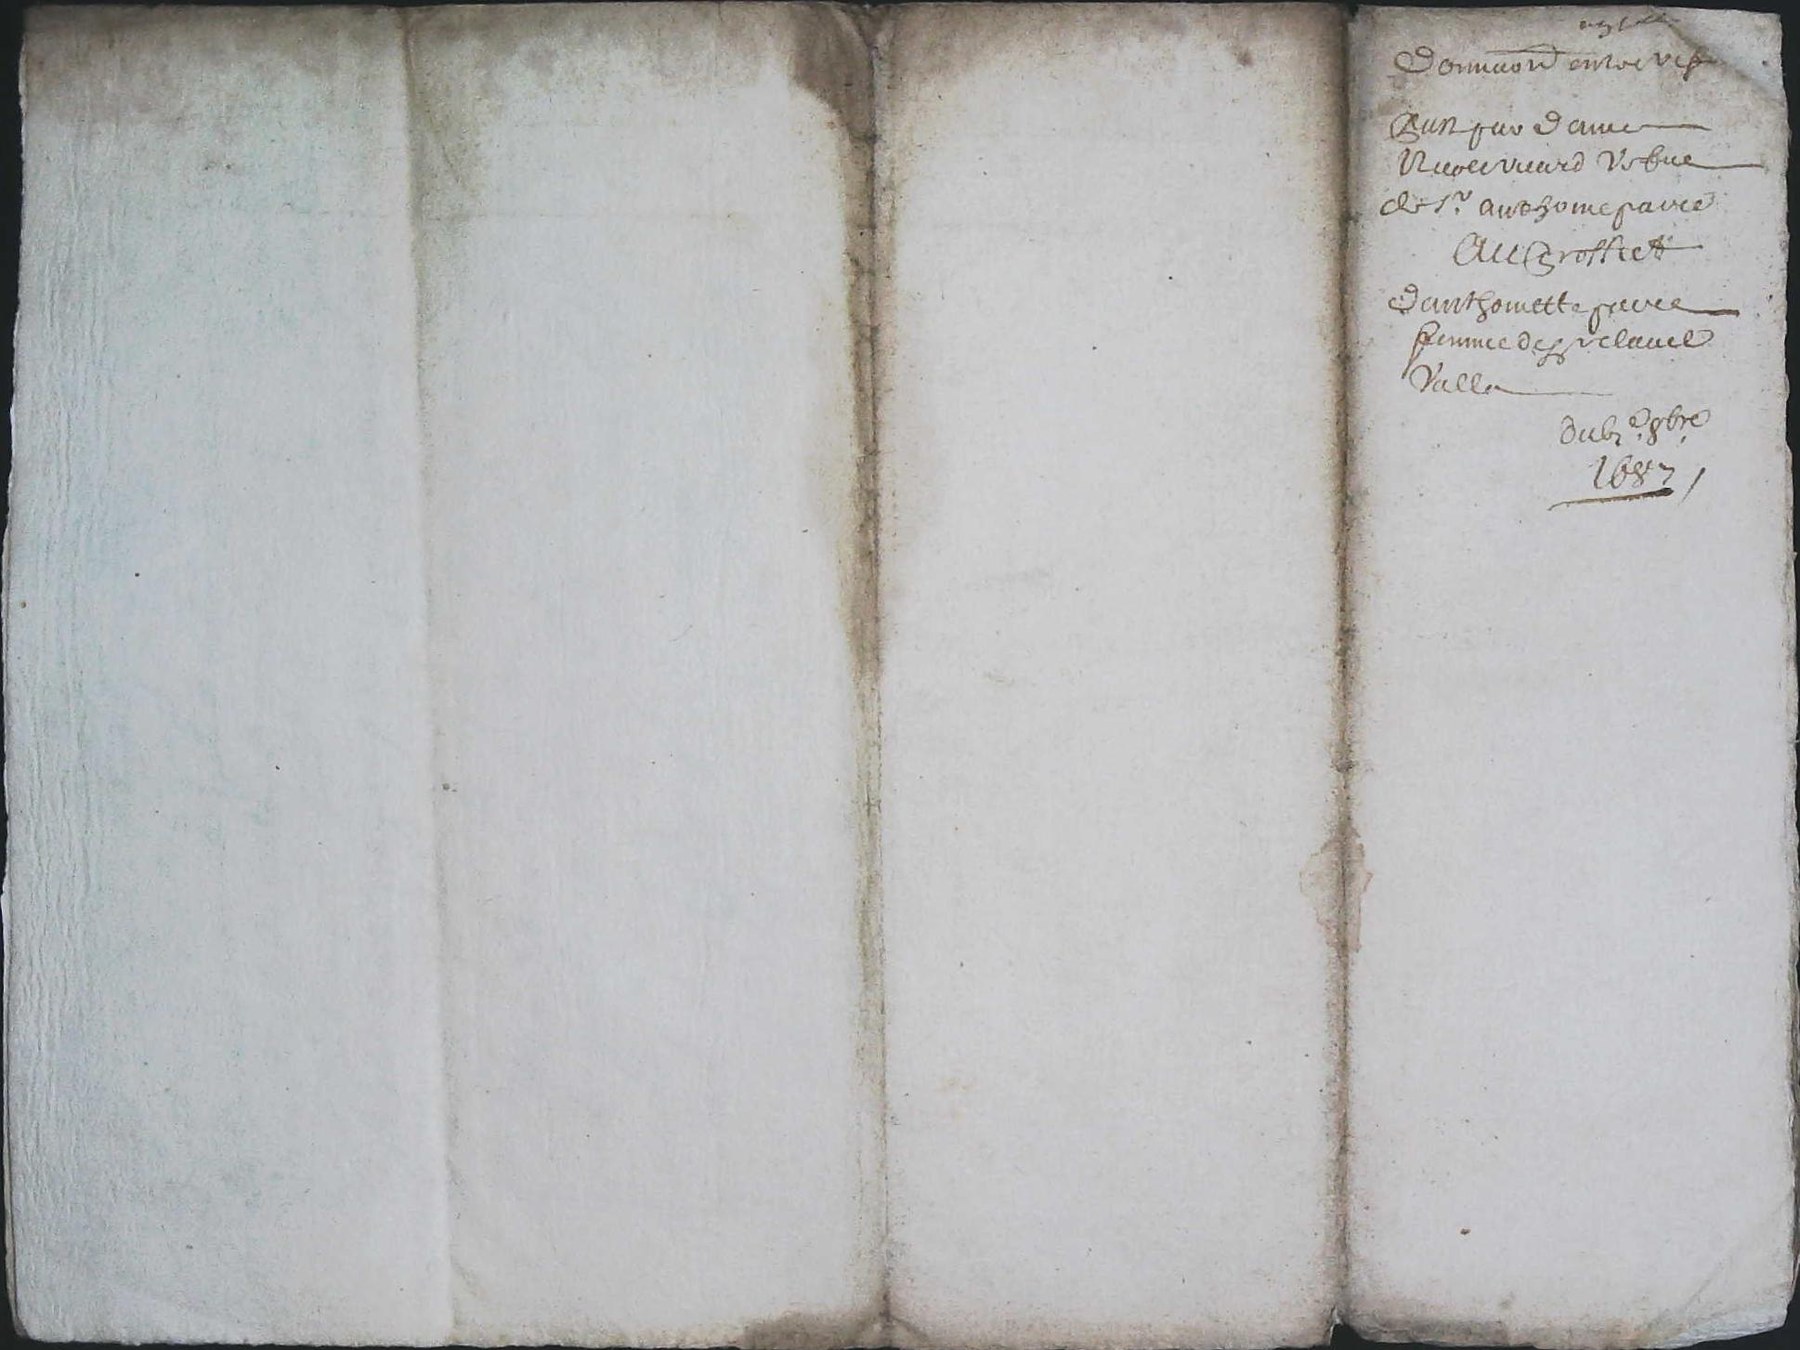 Donnaon entre vif
Fait par dame
Nicole Viard vefve
de Sr. anthoine favre
Au proffict
danthoinette favre
femme de
Valla
du 8bre
1687